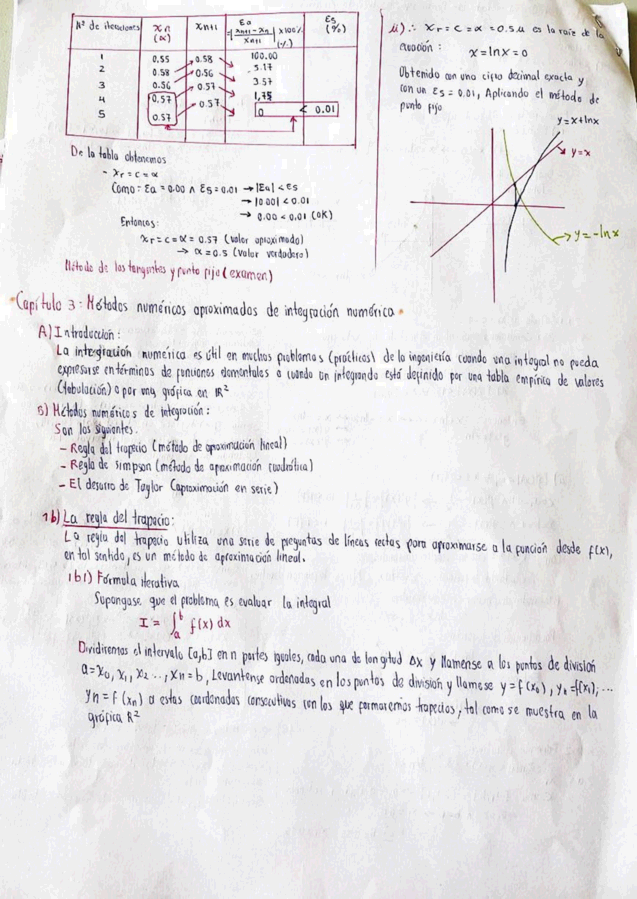 Nº de iteraciones | xn (α) | xn+1 | Ea = |xn+1 - xn / xn+1| x100% (%) | Es (%)
1 | 0.55 | 0.58 | 100.00
2 | 0.58 | 0.56 | 5.17
3 | 0.56 | 0.57 | 3.57
4 | 0.57 | 0.57 | 1,75
5 | 0.57 | | 0 < 0.01
De la tabla obtenemos
- xr = c = α
Como: Ea = 0.00 ∧ Es = 0.01 → |Ea| < es
→ |0.00| < 0.01
→ 0.00 < 0.01 (OK)
Entonces:
xr = c = α = 0.57 (valor aproximado)
→ α = 0.5 (valor verdadero)
Método de las tangentes y punto fijo (examen)
∴ xr = c = α = 0.5 es la raíz de la
ecuación : x = lnx = 0
Obtenido con una cifra decimal exacta y
con un Es = 0.01, Aplicando el método de
punto fijo
y = x + lnx
y = x
y = -lnx
Capítulo 3 : Métodos numéricos aproximados de integración numérica
A) Introducción :
La integración numérica es útil en muchos problemas (prácticos) de la ingeniería cuando una integral no pueda
expresarse en términos de funciones elementales o cuando un integrando está definido por una tabla empírica de valores
(tabulación) o por una gráfica en R²
B) Métodos numéricos de integración :
Son los siguientes.
- Regla del trapecio (método de aproximación lineal)
- Regla de simpson (método de aproximación cuadrática)
- El desarro de Taylor (aproximación en serie)
1b) La regla del trapecio:
La regla del trapecio utiliza una serie de preguntas de líneas rectas para aproximarse a la función desde f(x),
en tal sentido, es un método de aproximación lineal.
1b1) Fórmula iterativa
Supongase que el problema es evaluar la integral
I = ∫ₐᵇ f(x) dx
Dividiremos el intervalo [a,b] en n partes iguales, cada una de longitud Δx y llamense a los puntos de división
a = x₀, x₁, x₂ ..., xn = b, Levantense ordenadas en los puntos de división y llamese y = f(x₀), y₁ = f(x₁), ...
yn = f(xn) a estas coordenadas consecutivas con los que formaremos trapecios, tal como se muestra en la
gráfica R²